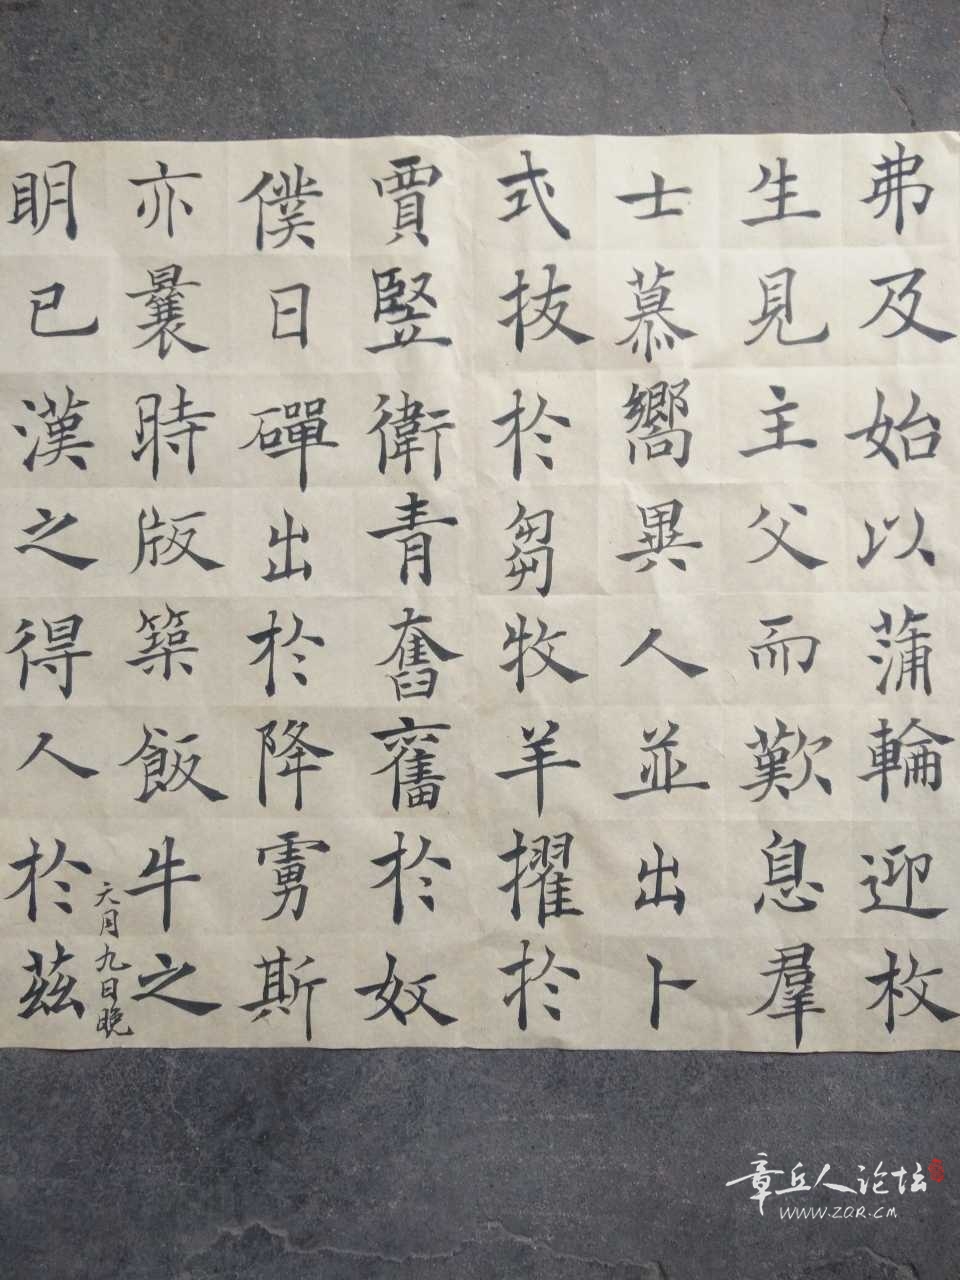 弗及始以蒲輪迎枚
生見主父而歎息羣
士慕嚮異人並出卜
式拔於芻牧羊擢於
賈豎衛青奮舊於奴
僕日磾出於降虜斯
亦曩時版築飯牛之
明已漢之得人於茲
六月九日晚
章丘人论坛
WWW.ZQR.CM